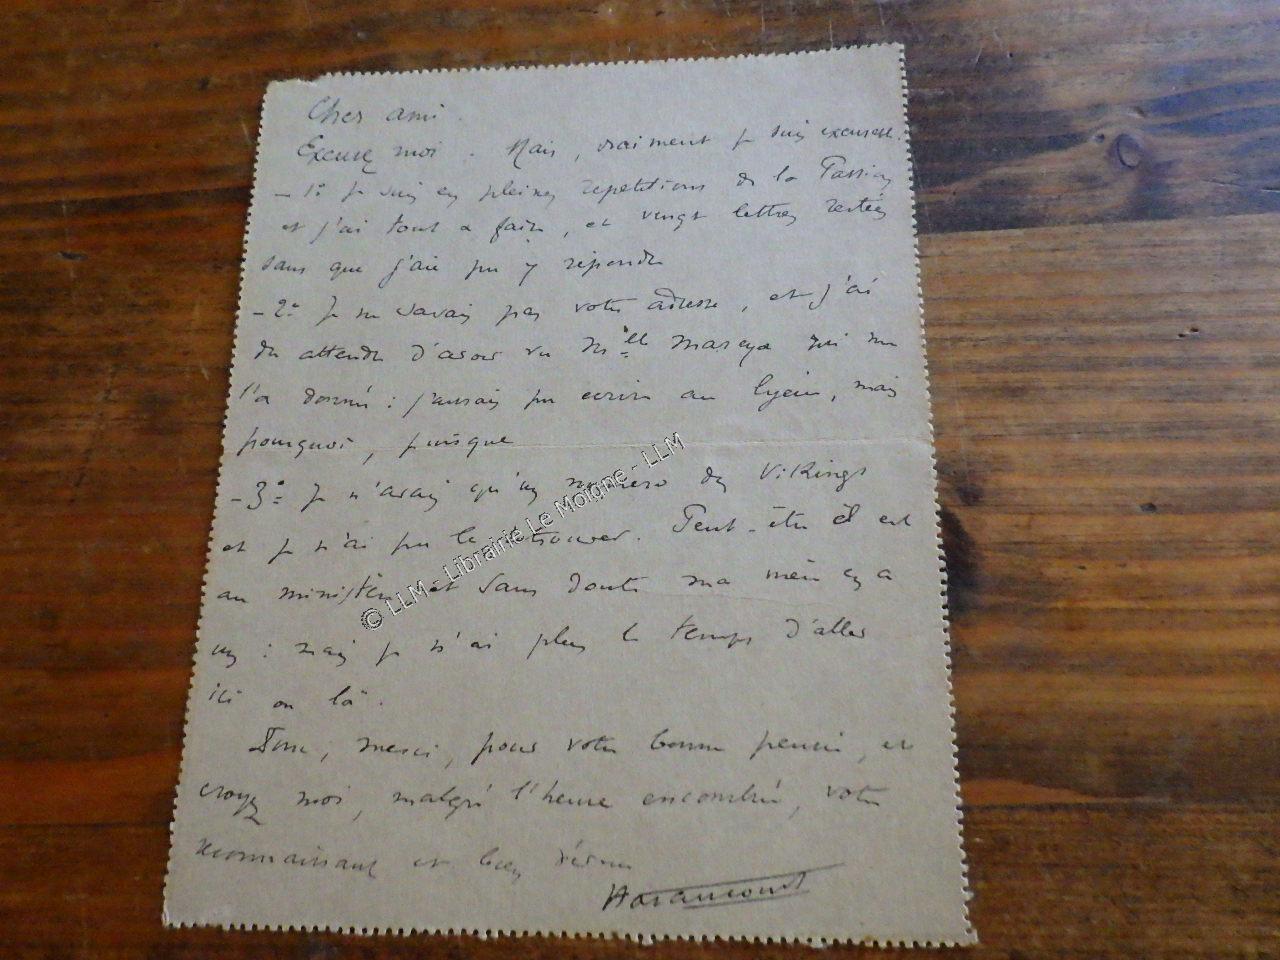 Cher ami.
Excusez moi. Mais, vraiment je suis excusable.
- 1º Je suis en pleines repetitions de la Passion
et j'ai tout a faire, et vingt lettres restées
sans que j'aie pu y répondre
- 2º Je ne savais pas votre adresse, et j'ai
du attendre d'avoir vu Mlle qui me
l'a donné : j'aurais pu ecrire au lycée, mais
pourquoi, puisque
- 3º Je n'avais qu'un numero des Vikings
et je n'ai pu le retrouver. Peut-être il est
au ministère et sans doute ma mère en a
un : mais je n'ai plus le temps d'aller
ici ou là.
Donc, merci, pour votre bonne pensée, et
croyez moi, malgré l'heure encombrée, votre
reconnaissant et bien dévoué
Haraucourt
© LLM - Librairie Le Moigne - LLM